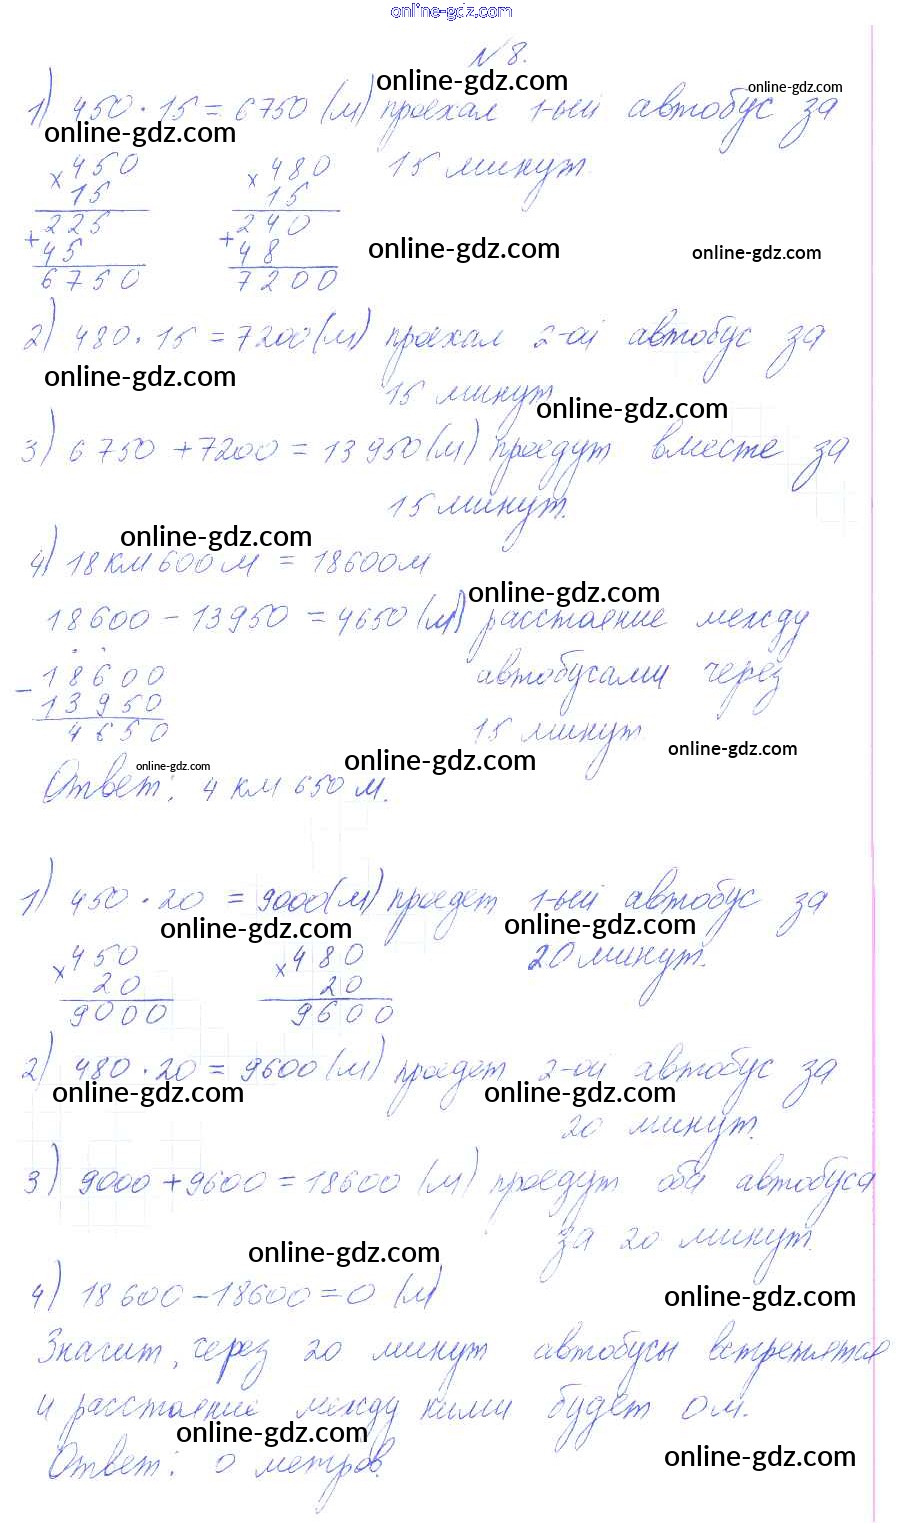 online-gdz.com
№ 8.
online-gdz.com
online-gdz.com
1) 450 · 15 = 6750 (м) проехал 1-ый автобус за
online-gdz.com
15 минут.
× 450
15
+ 225
45
6750
× 480
15
+ 240
48
7200
online-gdz.com
online-gdz.com
2) 480 · 15 = 7200 (м) проехал 2-ой автобус за
online-gdz.com
15 минут
online-gdz.com
3) 6750 + 7200 = 13950 (м) проедут вместе за
15 минут.
online-gdz.com
4) 18 км 600 м = 18600 м
online-gdz.com
18600 - 13950 = 4650 (м) расстояние между
автобусами через
15 минут
- 18600
13950
4650
online-gdz.com
online-gdz.com
online-gdz.com
Ответ: 4 км 650 м.
1) 450 · 20 = 9000 (м) проедет 1-ый автобус за
online-gdz.com
online-gdz.com
20 минут.
× 450
20
9000
× 480
20
9600
2) 480 · 20 = 9600 (м) проедет 2-ой автобус за
online-gdz.com
online-gdz.com
20 минут.
3) 9000 + 9600 = 18600 (м) проедут оба автобуса
за 20 минут.
online-gdz.com
4) 18600 - 18600 = 0 (м)
online-gdz.com
Значит, через 20 минут автобусы встретятся
и расстояние между ними будет 0 м.
online-gdz.com
Ответ: 0 метров.
online-gdz.com